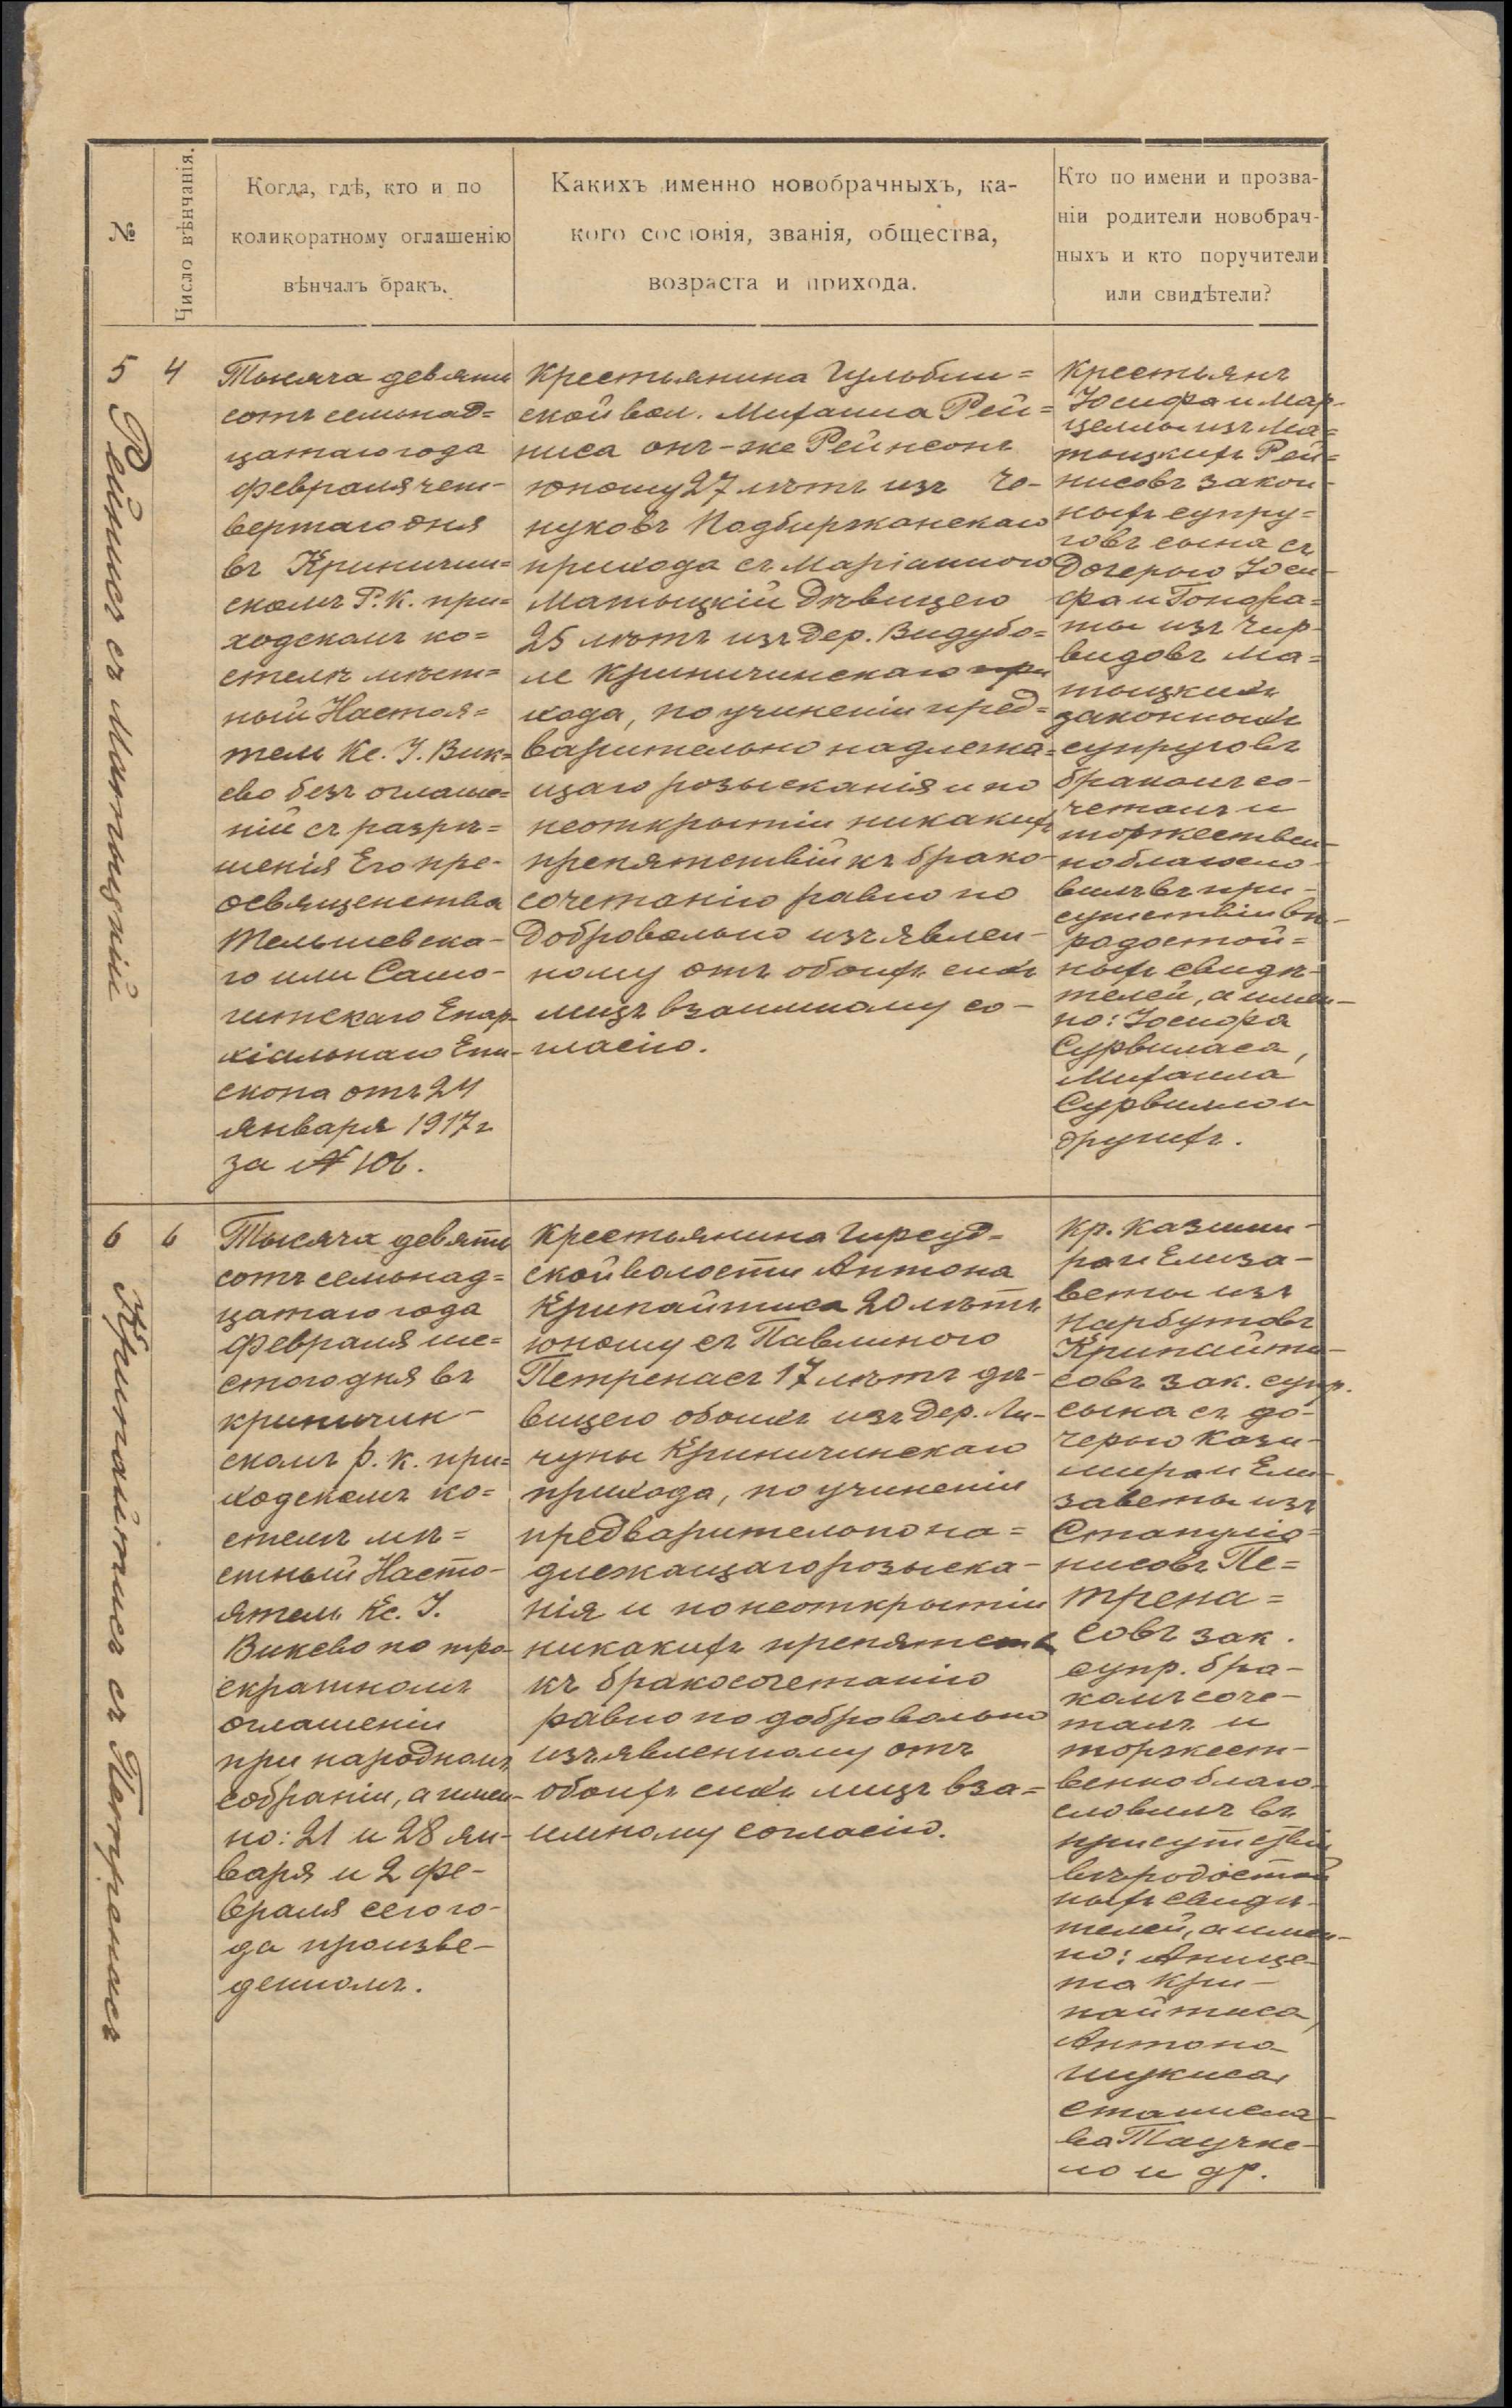 №
Число вѣнчанія.
Когда, гдѣ, кто и по
коликоратному оглашенію
вѣнчалъ бракъ.
Какихъ именно новобрачныхъ, ка-
кого сословія, званія, общества,
возраста и прихода.
Кто по имени и прозва-
ніи родители новобрач-
ныхъ и кто поручители
или свидѣтели?
5
4
Рейнисъ съ Матыцкій
Тысяча девять
сотъ семьнад=
цатаго года
февраля чет-
вертаго дня
въ Криничин=
скомъ Р. К. при=
ходскомъ ко=
стелѣ мѣст=
ный Настоя=
тель Кс. І. Вик=
сво безъ оглаше=
ній съ разрѣ=
шенія Его пре-
освященства
Тельшевска-
го или Само-
гитскаго Епар-
хіальнаго Епи-
скопа отъ 24
января 1917 г
за № 106.
Крестьянина Гульбин=
ской вол. Михаила Рей=
ниса онъ-же Рейнсонъ
юношу 27 лѣтъ изъ Че-
нуковъ Подбиржанскаго
прихода съ Маріанною
Матыцкій дѣвицею
25 лѣтъ изъ дер. Видубо=
ле Криничинскаго при
хода, по учиненіи пред=
варительно надлежа=
щаго розысканія и по
неоткрытіи никакихъ
препятствій къ брако-
сочетанію равно по
добровольно изъявлен-
ному отъ обоихъ сихъ
лицъ взаимному со-
гласію.
Крестьянъ
Іосифа и Мар-
целлы изъ Ма=
тыцкихъ Рей=
нисовъ закон-
ныхъ супру=
говъ сына съ
дочерью Іоси-
фа и Гонора=
ты изъ Чир-
видовъ Ма=
тыцкихъ
законныхъ
супруговъ
бракомъ со-
четалъ и
торжествен-
но благосло-
вилъ въ при-
сутствіи вѣ-
родостой=
ныхъ свидѣ-
телей, а имен-
но: Іосифа
Сурвиласа,
Михаила
Сурвилло и
другихъ.
6
6
Крипайтисъ съ Петренасъ
Тысяча девять
сотъ семьнад=
цатаго года
февраля ше=
стого дня въ
криничин-
скомъ р. к. при=
ходскомъ ко=
стелѣ мѣ=
стный Насто-
ятель Кс. І.
Виксво по тро-
екратномъ
оглашеніи
при народномъ
собраніи, а имен-
но: 21 и 28 ян-
варя и 2 фе-
враля сего го-
да произве-
денномъ.
Крестьянина Гиреуд-
ской волости Антона
Крипайтиса 20 лѣтъ
юношу съ Павлиною
Петренасъ 17 лѣтъ дѣ-
вицею обоихъ изъ дер. Ли-
чуны Криничинскаго
прихода, по учиненіи
предварительно на=
длежащаго розыска-
нія и по неоткрытіи
никакихъ препятств
къ бракосочетанію
равно по добровольно
изъявленному отъ
обоихъ сихъ лицъ вза=
имному согласію.
Кр. Казими-
ра и Елиза-
веты изъ
Нарбутовъ
Крипайти-
совъ зак. супр.
сына съ до-
черью Кази-
мира и Ели-
заветы изъ
Стапуліо=
нисовъ Пе=
трена=
совъ зак.
супр. бра-
комъ соче-
талъ и
торжест-
венно благо-
словилъ въ
присутствіи
вѣродостой
ныхъ свидѣ-
телей, а имен-
но: Аница-
та Кри-
пайтиса,
Антона
Шукиса,
Станисла-
ва Таучке-
ло и др.